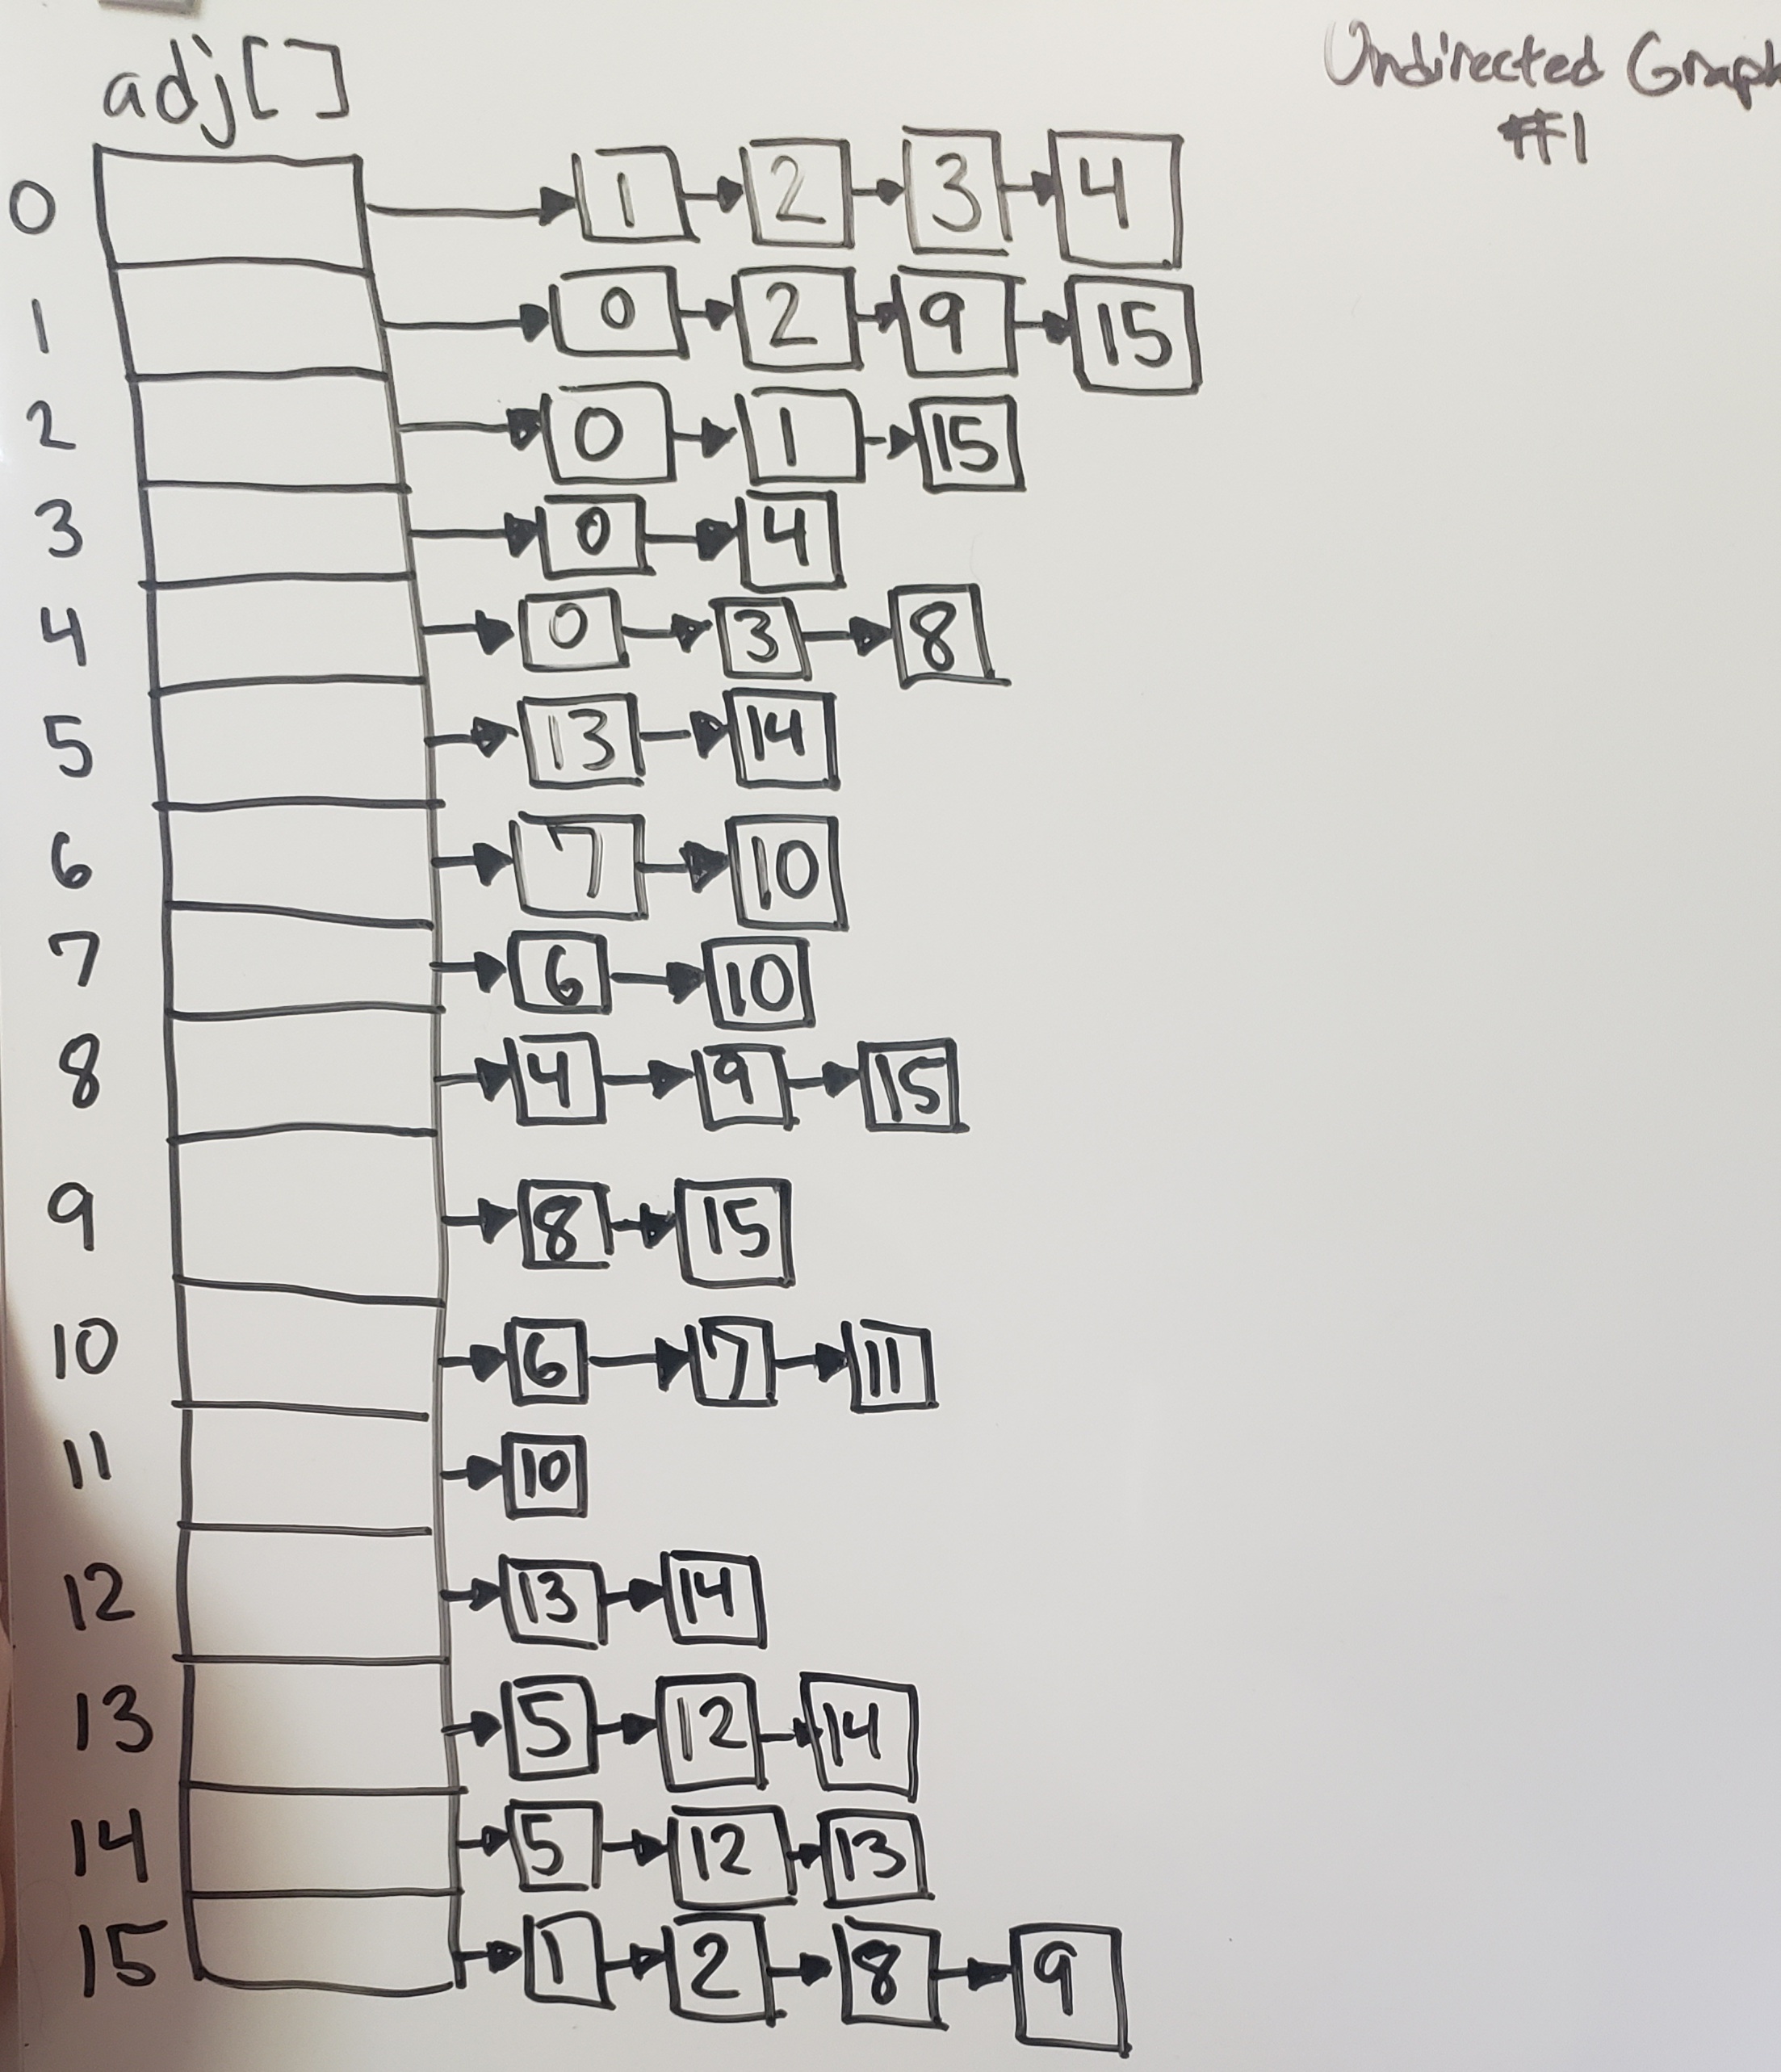 adj[]
Undirected Graph
#1
0 1 2 3 4
1 0 2 9 15
2 0 1 15
3 0 4
4 0 3 8
5 13 14
6 7 10
7 6 10
8 4 9 15
9 8 15
10 6 7 11
11 10
12 13 14
13 5 12 14
14 5 12 13
15 1 2 8 9